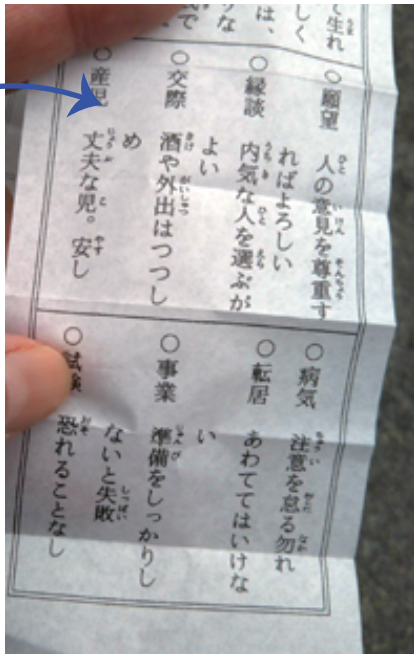 て生れ
しく
は、
○願望 人の意見を尊重す
ればよろしい
○縁談 内気な人を選ぶが
よい
○交際 酒や外出はつつし
め
○産児 丈夫な児。安し
○病気 注意を怠る勿れ
○転居 あわててはいけな
い
○事業 準備をしっかりし
ないと失敗
○試験 恐れることなし